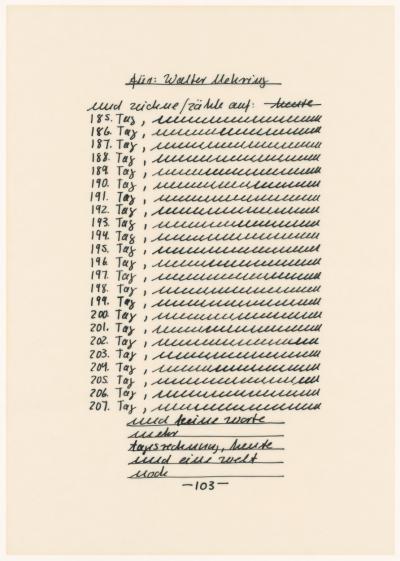 für: Walter Mehring
und zeichne/zähle auf: heute
185. Tag,
186. Tag,
187. Tag,
188. Tag,
189. Tag,
190. Tag,
191. Tag,
192. Tag,
193. Tag,
194. Tag,
195. Tag,
196. Tag,
197. Tag,
198. Tag,
199. Tag,
200. Tag,
201. Tag,
202. Tag,
203. Tag,
204. Tag,
205. Tag,
206. Tag,
207. Tag,
und keine worte
mehr
tagsrechnung, heute
und eine welt
noch
-103-